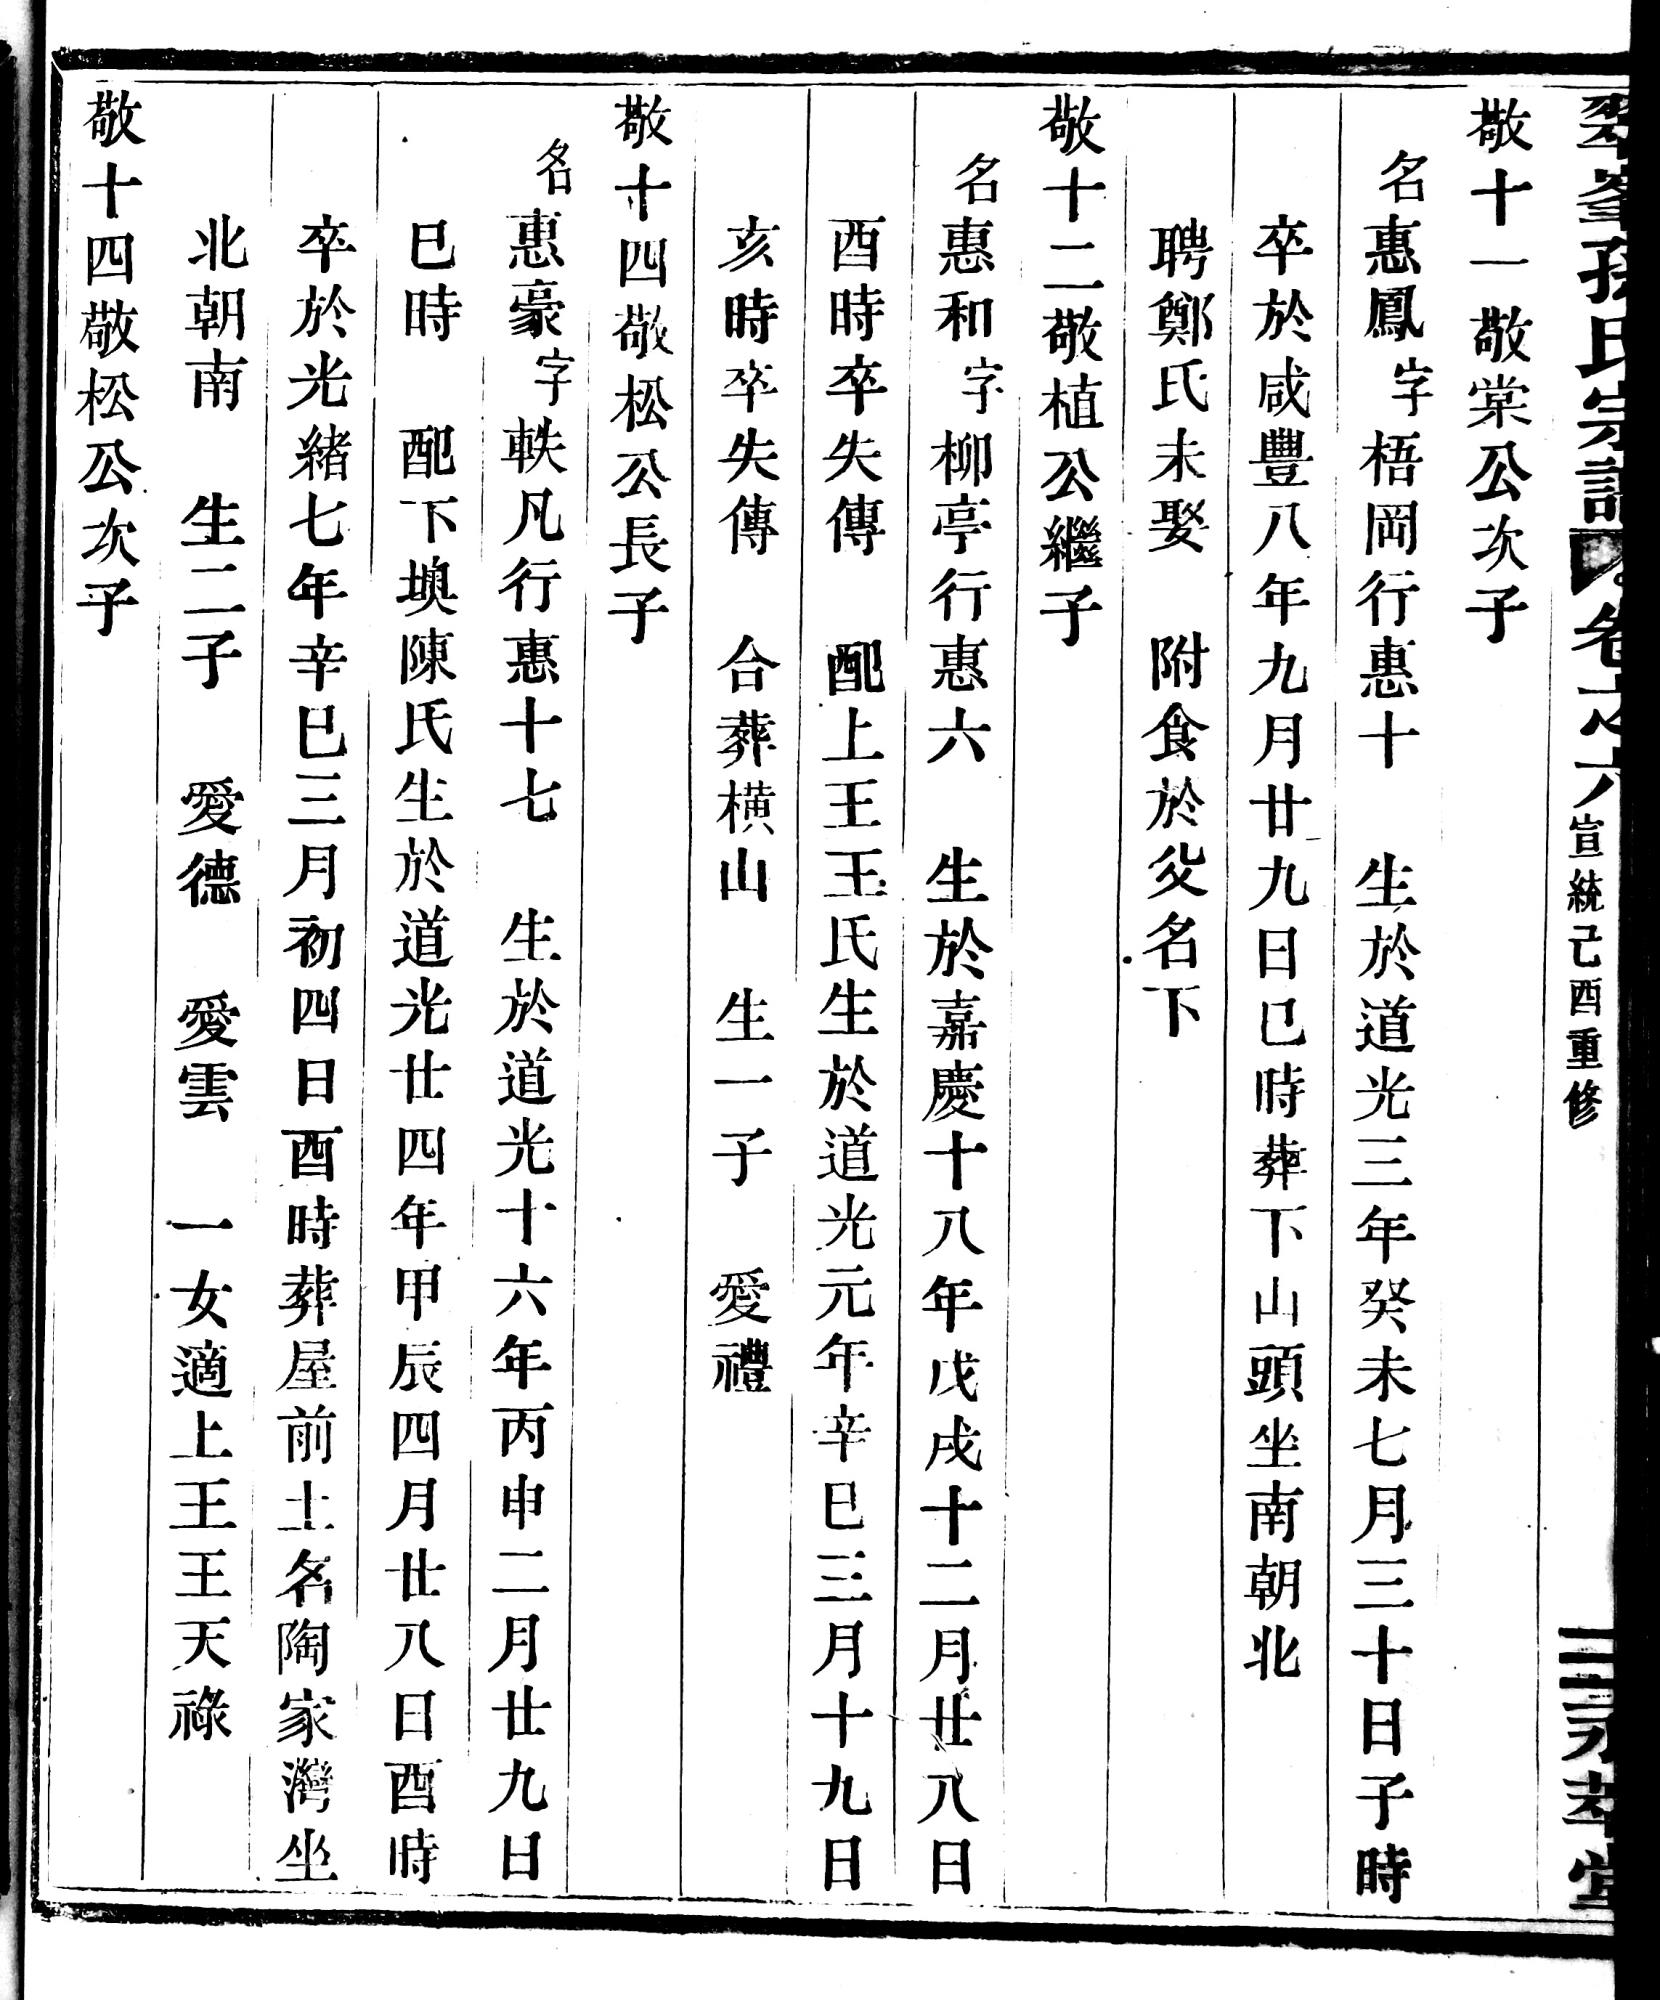 翠峯孫氏宗譜 卷之六 宣統己酉重修 三 永萃堂
敬十一敬棠公次子
名惠鳳字梧岡行惠十 生於道光三年癸未七月三十日子時
卒於咸豐八年九月廿九日巳時葬下山頭坐南朝北
聘鄭氏未娶 附食於父名下
敬十二敬植公繼子
名惠和字柳亭行惠六 生於嘉慶十八年戊戌十二月廿八日
酉時卒失傳 配上王王氏生於道光元年辛巳三月十九日
亥時卒失傳 合葬橫山 生一子 愛禮
敬十四敬松公長子
名惠豪字軼凡行惠十七 生於道光十六年丙申二月廿九日
巳時 配下墺陳氏生於道光廿四年甲辰四月廿八日酉時
卒於光緒七年辛巳三月初四日酉時葬屋前土名陶家灣坐
北朝南 生二子 愛德 愛雲 一女適上王王天祿
敬十四敬松公次子